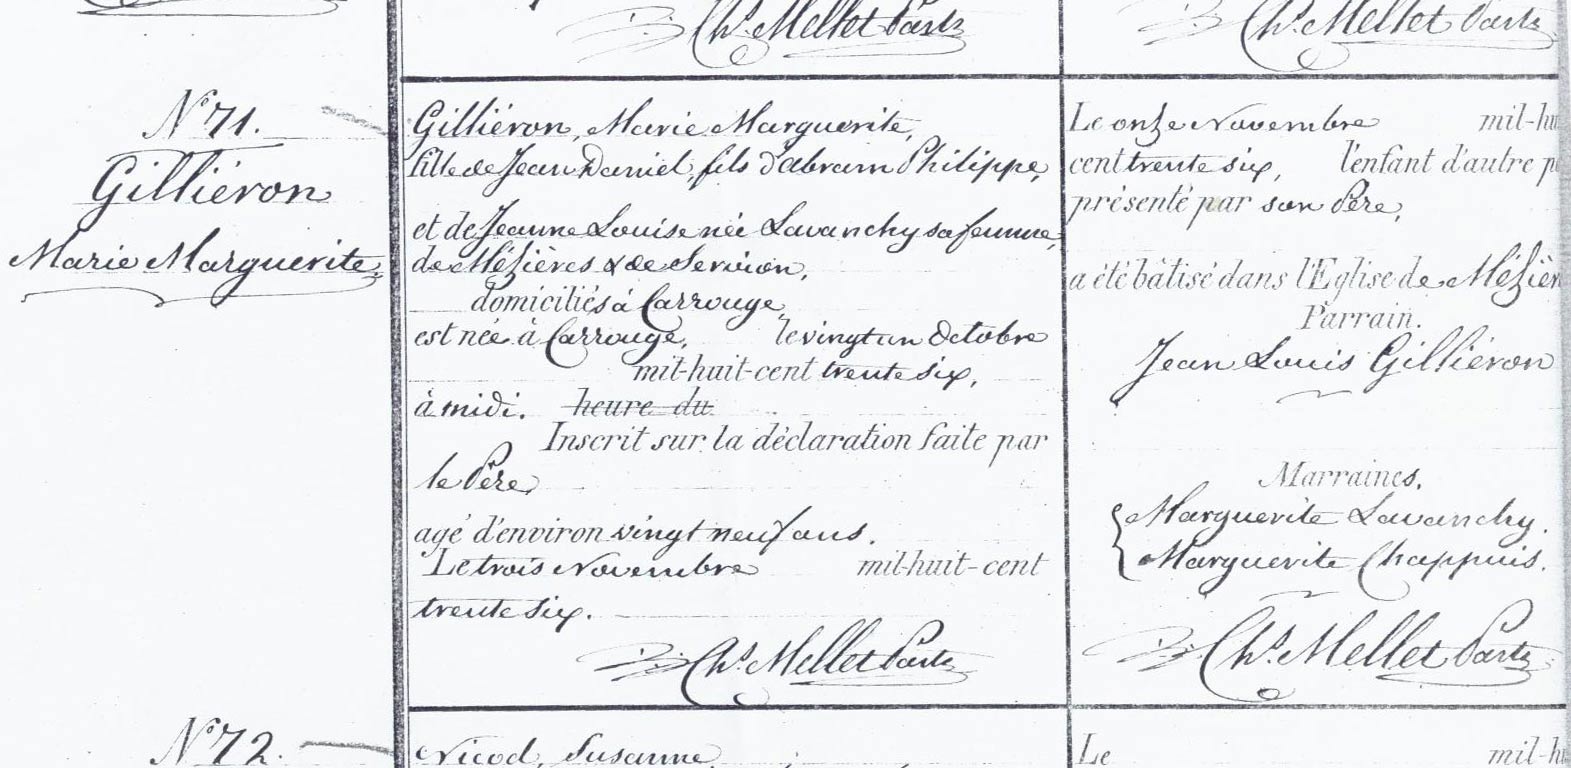 Chs. Mellet Past.
Chs. Mellet Past.
No 71.
Gilliéron
Marie Marguerite
Gilliéron, Marie Marguerite,
fille de Jean Daniel, fils d'abram Philippe,
et de Jeanne Louise née Lavanchy sa femme,
de Mézières & de Servion,
domiciliés à Carrouge,
est née à Carrouge, le vingt un Octobre
mil-huit-cent trente six,
à midi. heure du
Inscrit sur la déclaration faite par
le Père,
agé d'environ vingt neuf ans.
Le trois Novembre mil-huit-cent
trente six.
Chs. Mellet Past.
Le onze Novembre mil-hu
cent trente six, l'enfant d'autre p
présenté par son Père,
a été bâtisé dans l'Eglise de Mézièr
Parrain.
Jean Louis Gilliéron
Marraines,
Marguerite Lavanchy.
Marguerite Chappuis.
Chs. Mellet Past.
No 72.
Nicod, Susanne,
Le mil-h